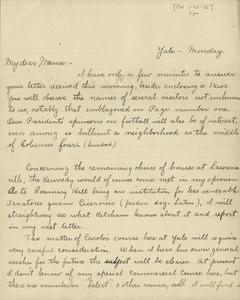 Yale - Monday.
My dear Mama:-
I have only a few minutes to answer
your letter received this morning, besides enclosing a News
You will observe the names of several visitors not unknown
to us, notably that emblazoned on Page number one.
Our President's opinions on football will also be of interest,
even among so brilliant a neighborhood as the middle
of Column four.
Concerning the remaining choice of houses at Lawrence-
ville, the Kennedy would of course come next in my opinion
As to Rosemary Hall being an institution for less venerable
Senatores quam Cicerones (pardon dog-latin), I will
straightway see what Ketcham knows about it and report
in my next letter.
The matter of Carolos course here at Yale will require
very careful consideration. When I hear his own general
wishes for the future the subject will be clearer. At present
I don't know of any special commercial course here, but
there are numberless Select & other courses, and I will find out